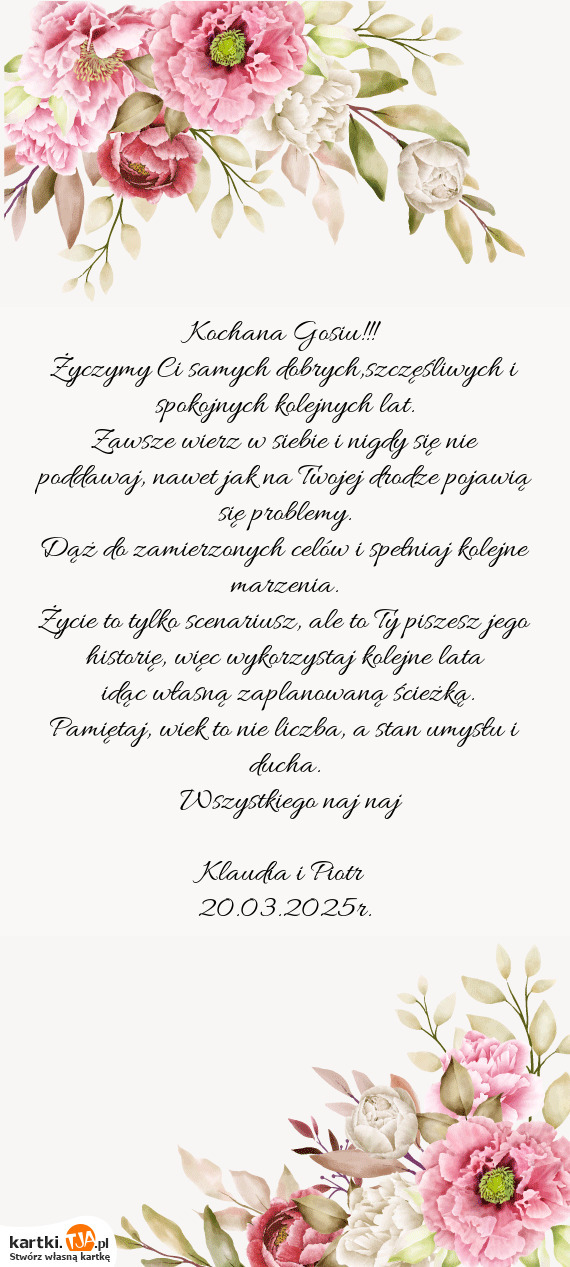 Kochana Gosiu!!!
Życzymy Ci samych dobrych,szczęśliwych i
spokojnych kolejnych lat.
Zawsze wierz w siebie i nigdy się nie
poddawaj, nawet jak na Twojej drodze pojawią
się problemy.
Dąż do zamierzonych celów i spełniaj kolejne
marzenia.
Życie to tylko scenariusz, ale to Ty piszesz jego
historię, więc wykorzystaj kolejne lata
idąc własną zaplanowaną ścieżką.
Pamiętaj, wiek to nie liczba, a stan umysłu i
ducha.
Wszystkiego naj naj
Klaudia i Piotr
20.03.2025r.
kartki.TJA.pl
Stwórz własną kartkę